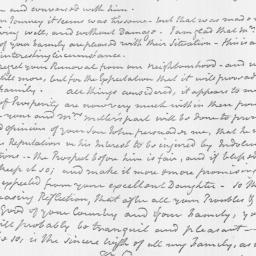 and conversed with him.
Journey it seems was tiresome - but that was made
ing well, and without Damage. I am glad that Mrs
of your family are pleased with their Situation - this is a
interesting Circumstance.
regret your Removal from our Neighbourhood - and w
still more, but for the Expectation that it will prove ad
Family. All things considered, it appears to m
of Prosperity are now very much within their pow
you and Mrs Miller's part will be Done to prom
opinion of your Son John persuades me, that he w
Reputation or his Interest to be injured by Indolen
tions - the Prospect before him is fair, and if blessed
keep it so; and make it more & more promising
expected from your excellent Daughter - so th
easing Reflection, that after all your Troubles &
Good of your Country and your Family, yo
will probably be tranquil and pleasant -
so, is the sincere wish of all my Family, as